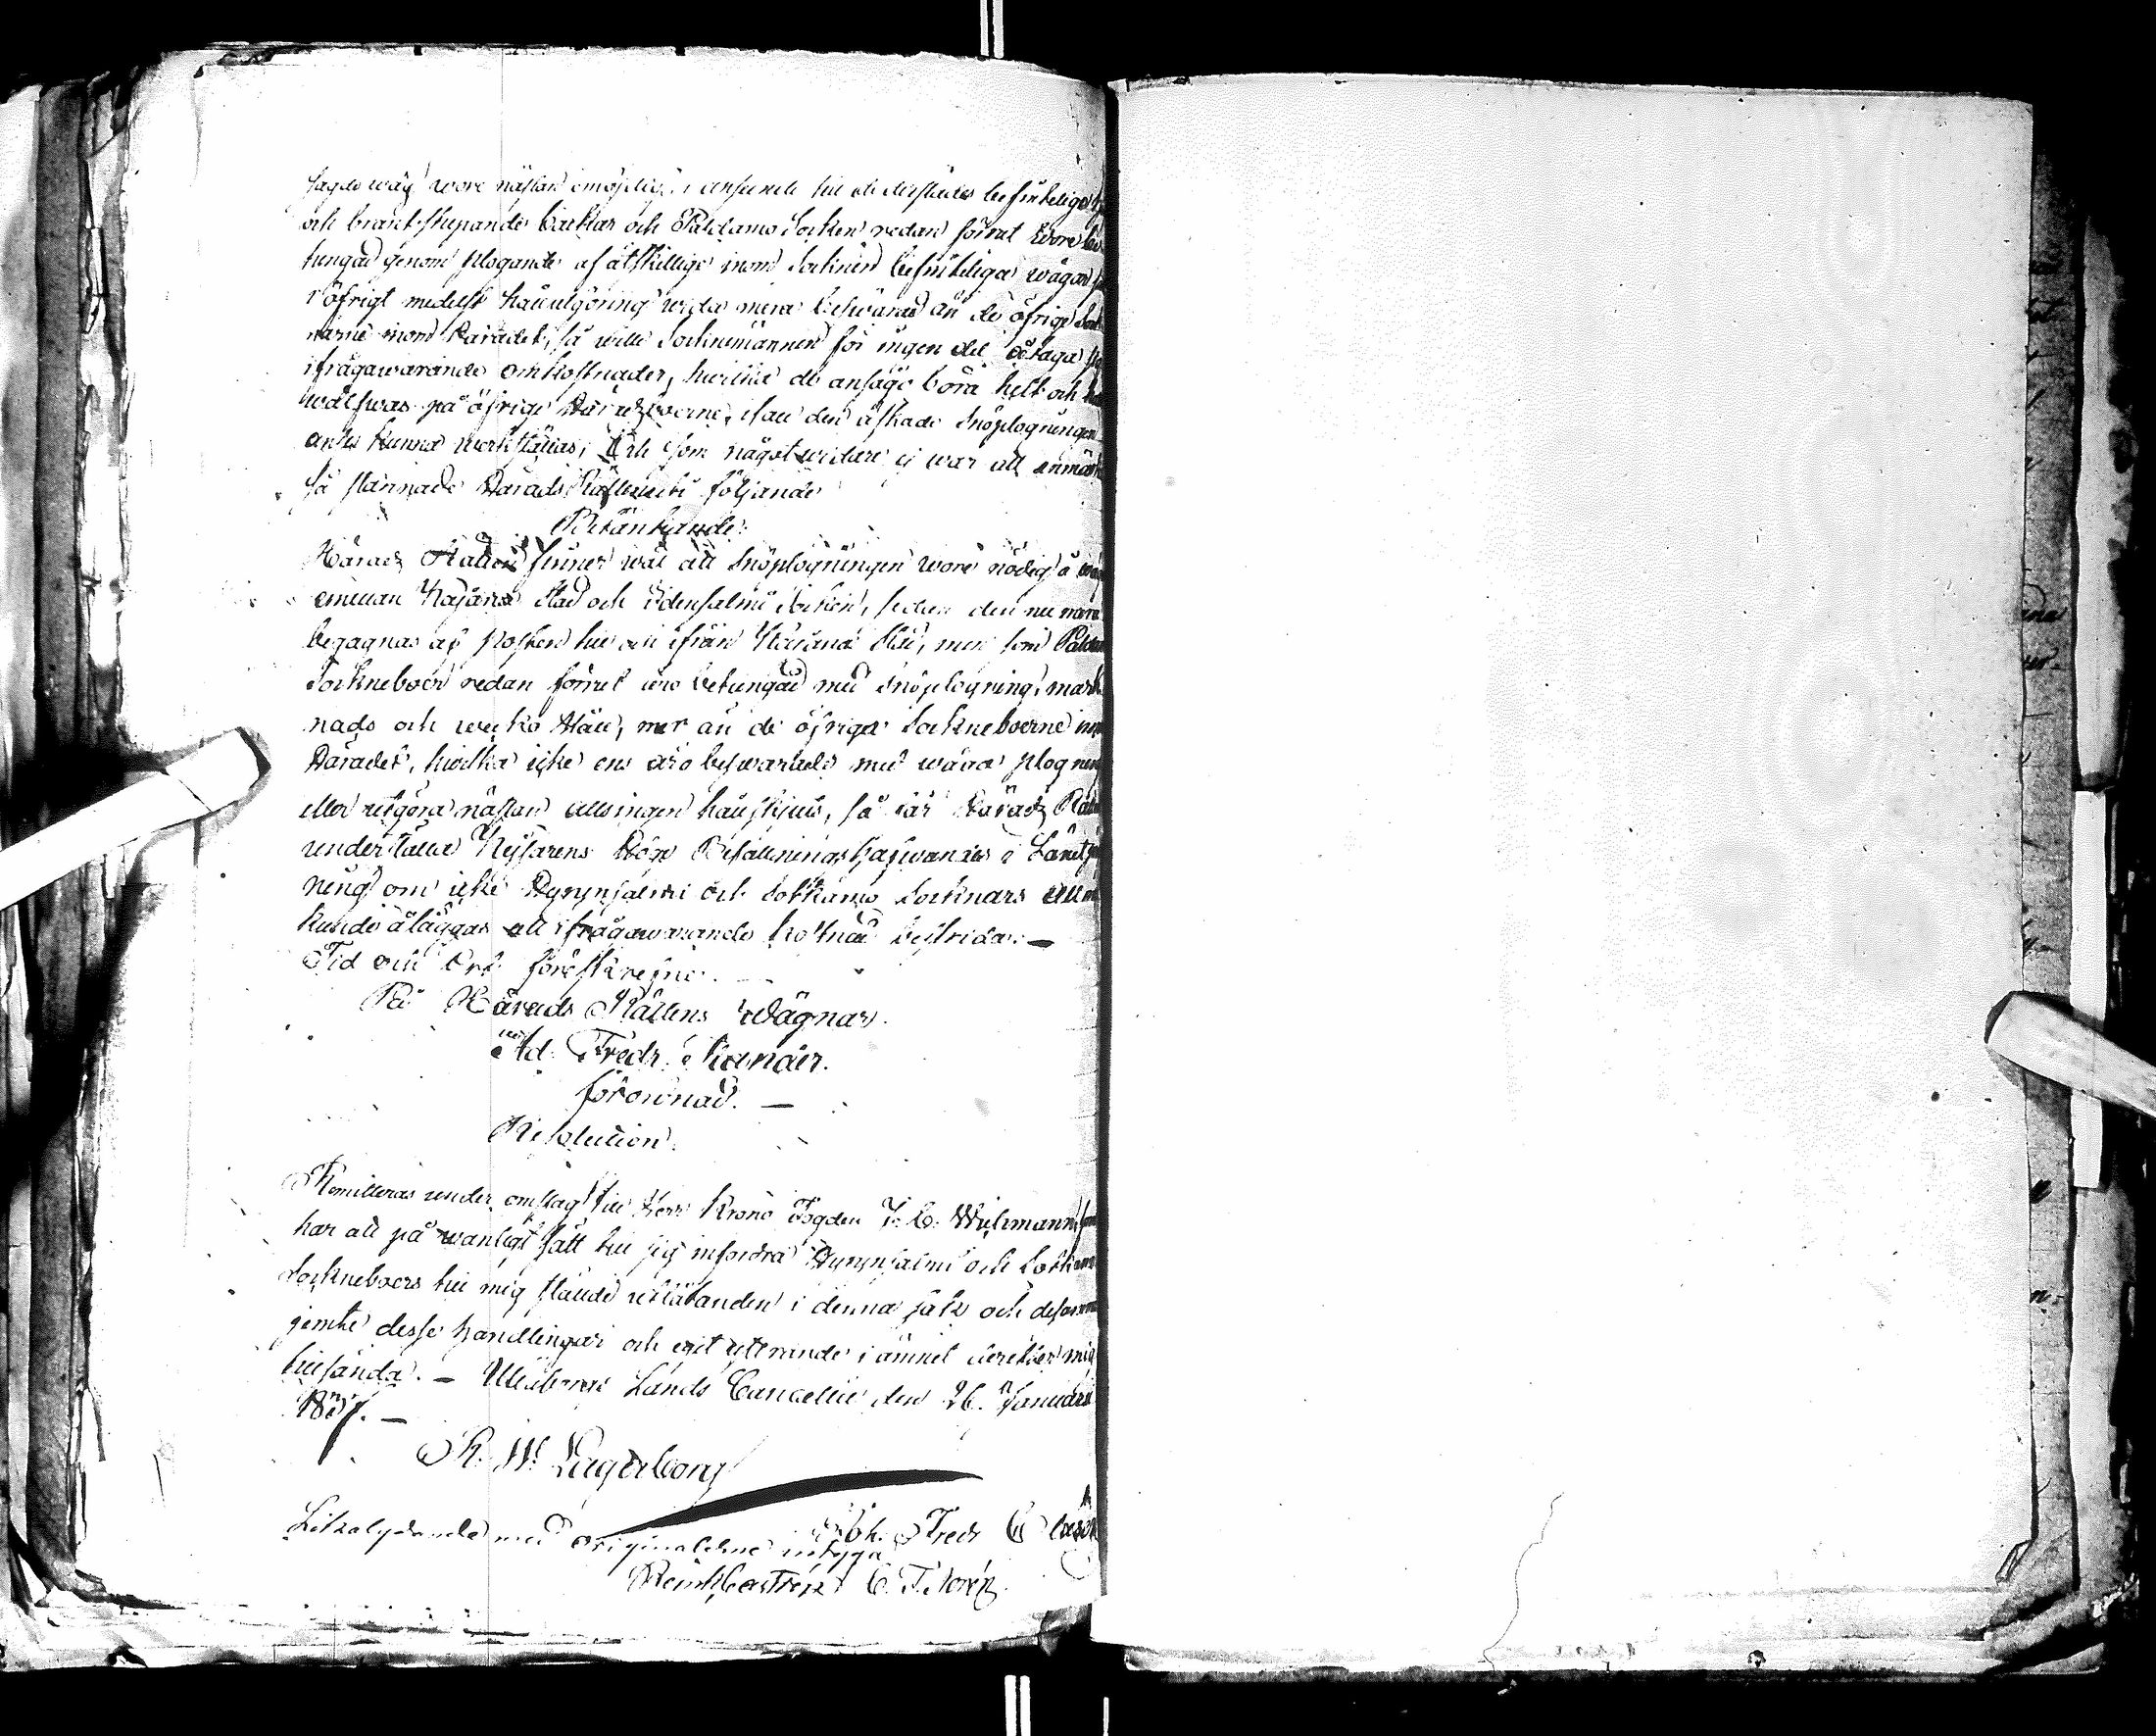 sagde wäg wore nästan omöjelig, i anseende till de derstädes befintelige
och brant stupande backar och Paldamo Socken redan förrut wore be
tungad genom plogande af åtskillige inom Socknen befinteliga wägar
i öfrigt medelst hållutgöring wida mera beswärad än de öfrige Sock
narne inom Häradet, så wille Socknemännen för ingen del åtaga sig
ifrågawarande omkostnader, hwilka de ansågo böra helt och
wältwas på öfrige Häradzboerne, ifall den äskade snöplogningen
anses kunna werkställas; Och som något widare ej war att anmärka
så stannade Härads Rätten uti följande
Betänkande:
Härads Rätten finner wäl att snöplogningen wore nödig å wäg
emellan Kajana Stad och Idensalmi Socken, sedan den nu mera
begagnas af posten till och ifrån Kajana Stad, men som Paldamo
Sockneboer redan förrut äro betungade med snöplogning, mark
nads och wecko Håll, mer än de öfriga Sockneboerne inom
Häradet, hwilka icke ens äro beswärade med wäga plogning
eller utgöra nästan allsingen hållskjuts, så lär Härads Rätten
underställa Kejsarens Höge Befallningshafwandes i Länet
ning om icke Hyrynsalmi och Sotkamo Socknars
kunde åläggas att ifrågawarande kostnad bestrida. —
Tid och Ort förestäregne.
På Härads Rättens Wägnar.
Ad. Fredr.
förordnad. —
Resolution.
Remitteras under omslag till Herr Krono Fogden J. C. Wichmann, som
har att på wanligt sätt till sig infordra Hyrynsalmi och Sotkamo
Sockneboers till mig ställde utlåtanden i denna sak och desamma
jemte desse handlingar och eget yttrande i ämnet återkter mig
tillsända. — Uleåborgs Lands Cancellie den 26. Januarii
1837. —
R. W. Lagerborg
Joh. Fredr
Lika lydande med originalerne intyga
Reinh Castrén C. F. Norén